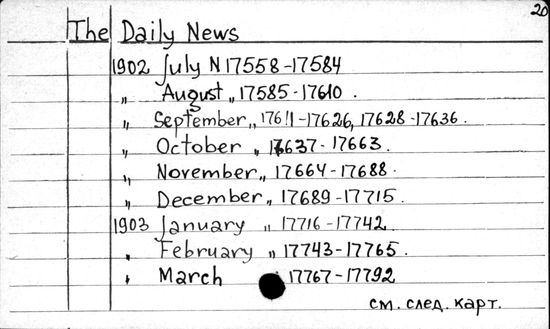 20
The Daily News
1902 July N 17558-17584
" August " 17585-17610.
" September " 17611-17626, 17628-17636.
" October " 17637-17663.
" November " 17664-17688.
" December " 17689-17715.
1903 January " 17716-17742.
" February " 17743-17765.
" March 17767-17792
см. след. карт.